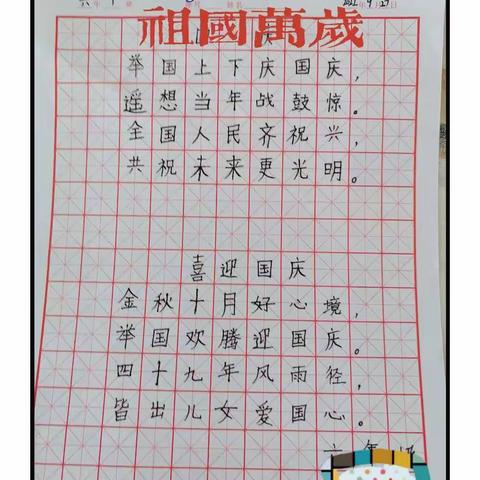 祖國萬歲
举国上下庆国庆，
遥想当年战鼓惊。
全国人民齐祝兴，
共祝未来更光明。
喜迎国庆
金秋十月好心境，
举国欢腾迎国庆。
四十九年风雨径，
皆出儿女爱国心。